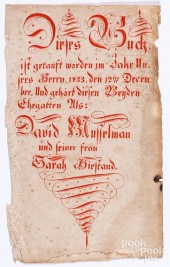 Dieses Buch,
ist gekauft worden im Jahr Un-
sers Herrn, 1823. den 12ten Decem-
ber. Und gehört diesen Beyden
Ehegatten Als:
David Musselman
und seiner frau
Sarah Hiestand.